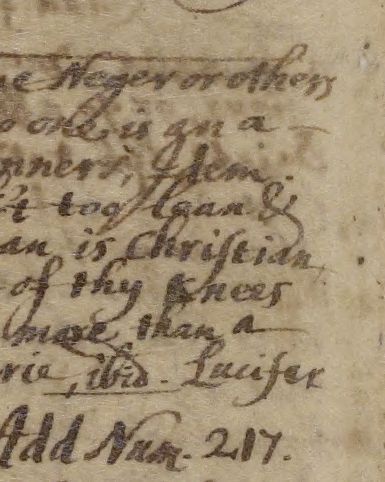 Neger or others
one, is gn a
nners, Idem.
't too lean &
an is Christian
of thy Knees
more, than a
rie, ibid. Lucifer
Add Num. 217.